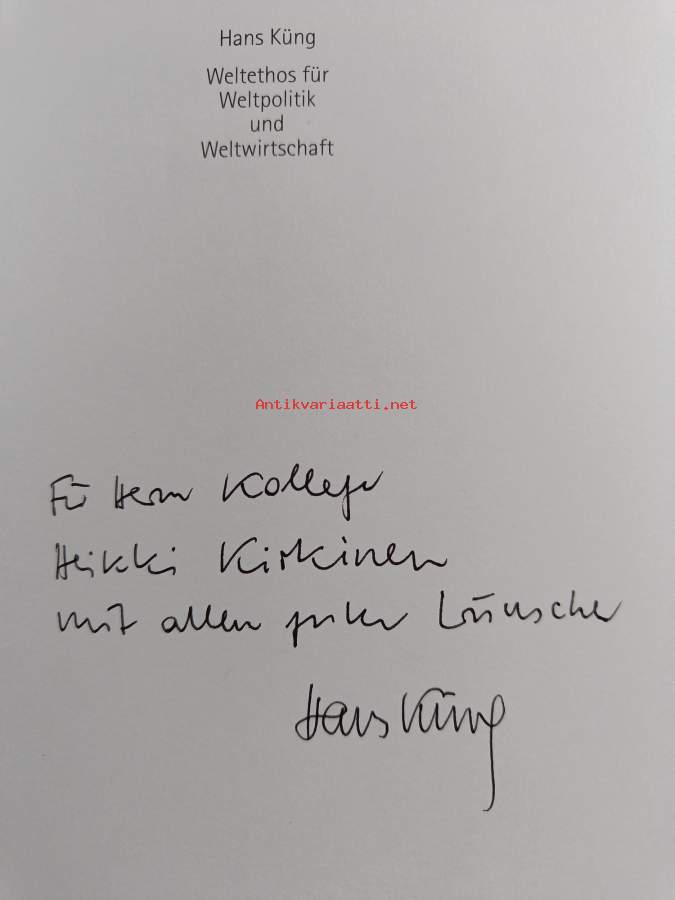 Hans Küng
Weltethos für
Weltpolitik
und
Weltwirtschaft
Antikvariaatti.net
Für Herrn Kollegen
Heikki Kirkinen
mit allen guten Wünschen
Hans Küng